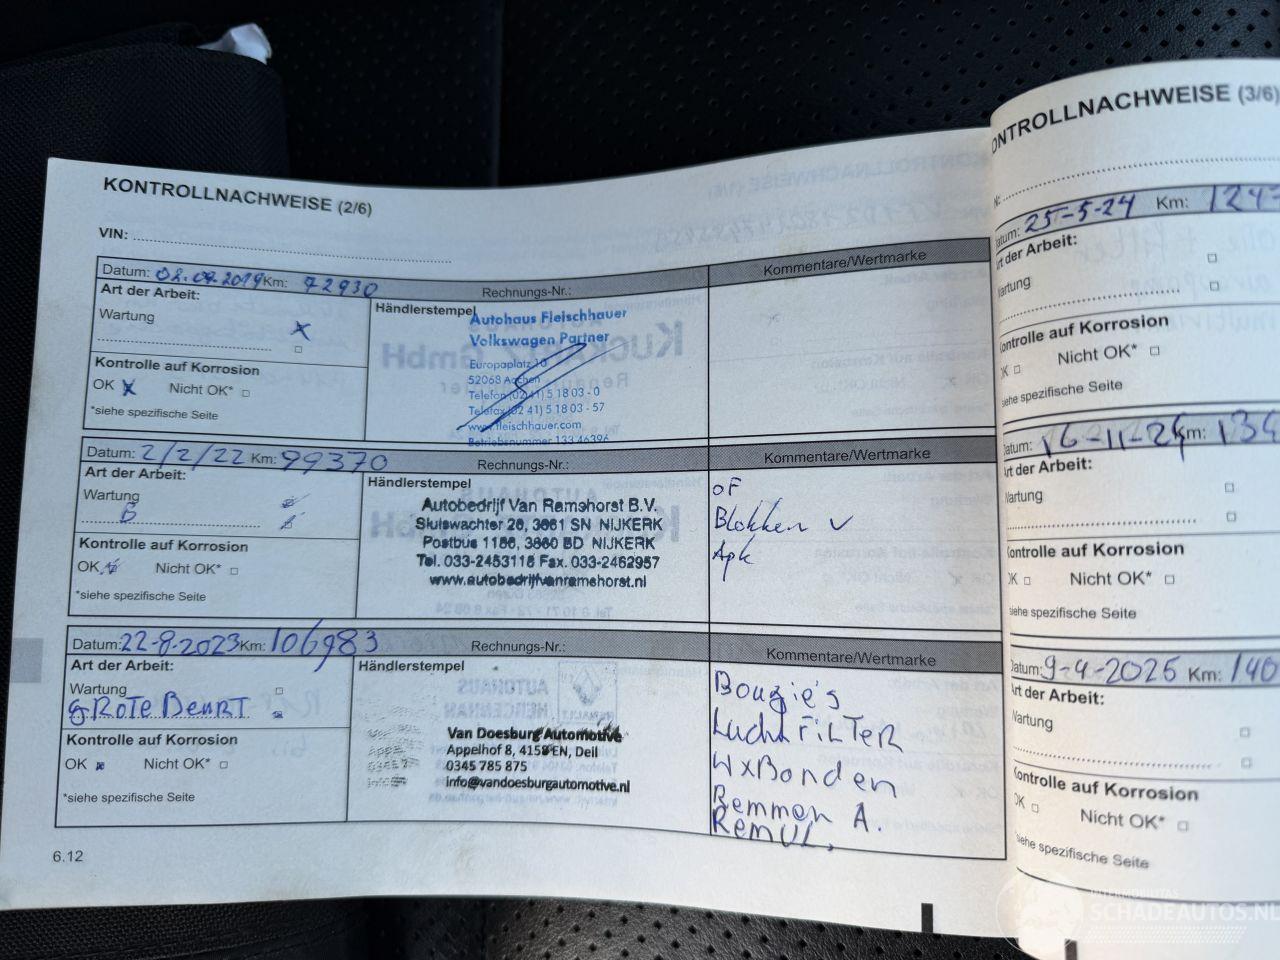 KONTROLLNACHWEISE (2/6)
VIN:
Datum: 02.07.2019 Km: 72930 Rechnungs-Nr.: Kommentare/Wertmarke
Art der Arbeit:
Wartung
Kontrolle auf Korrosion
OK Nicht OK*
*siehe spezifische Seite
Händlerstempel
Autohaus Fleischhauer
Volkswagen Partner
Europaplatz 10
52068 Aachen
Telefon (02 41) 5 18 03 - 0
Telefax (02 41) 5 18 03 - 57
www.fleischhauer.com
Betriebsnummer 133 46396
Datum: 2/2/22 Km: 99370 Rechnungs-Nr.: Kommentare/Wertmarke
Art der Arbeit:
Wartung
B
Kontrolle auf Korrosion
OK Nicht OK*
*siehe spezifische Seite
Händlerstempel
Autobedrijf Van Ramshorst B.V.
Sluiswachter 26, 3861 SN NIJKERK
Postbus 1186, 3860 BD NIJKERK
Tel. 033-2453118 Fax. 033-2462957
www.autobedrijfvanramshorst.nl
OF
Blokken v
Apk
Datum: 22-8-2023 Km: 106983 Rechnungs-Nr.: Kommentare/Wertmarke
Art der Arbeit:
Wartung
GROTE BEURT
Kontrolle auf Korrosion
OK Nicht OK*
*siehe spezifische Seite
Händlerstempel
Van Doesburg Automotive
Appelhof 8, 4158 EN, Deil
0345 785 875
info@vandoesburgautomotive.nl
Bougie's
LuchtFilTER
Remmen A.
REMVL.
6.12
ONTROLLNACHWEISE (3/6)
N:
Datum: 25-5-24 Km: 1247
Art der Arbeit:
Wartung
Kontrolle auf Korrosion
OK Nicht OK*
siehe spezifische Seite
Datum: 16-11-24 Km: 134
Art der Arbeit:
Wartung
Kontrolle auf Korrosion
OK Nicht OK*
siehe spezifische Seite
Datum: 9-4-2025 Km: 140
Art der Arbeit:
Wartung
Kontrolle auf Korrosion
OK Nicht OK*
*siehe spezifische Seite
SCHADEAUTOS.NL